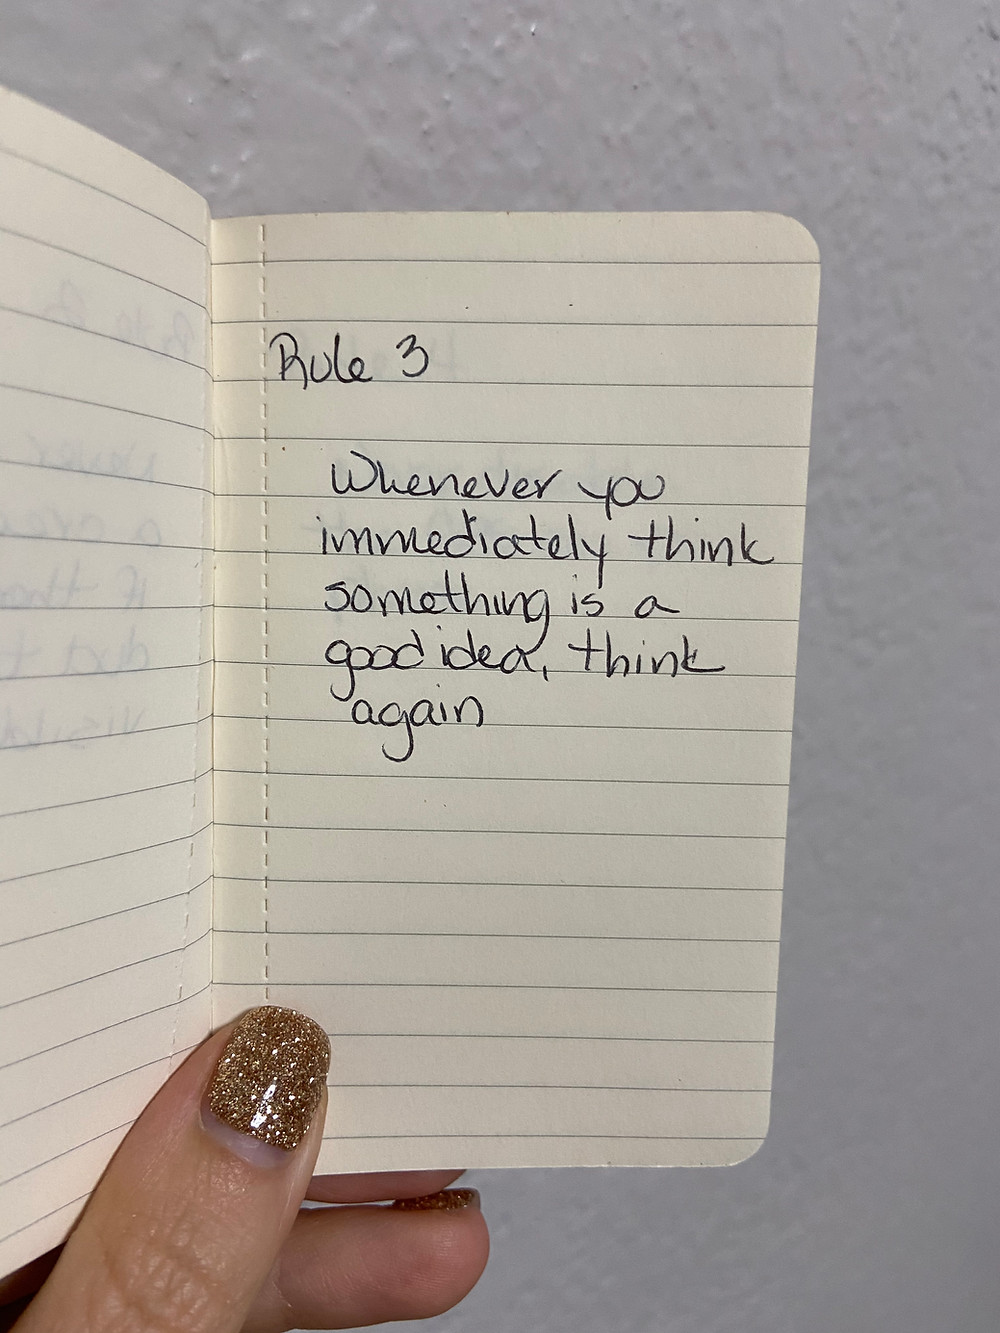 Rule 3
Whenever you
immediately think
something is a
good idea, think
again